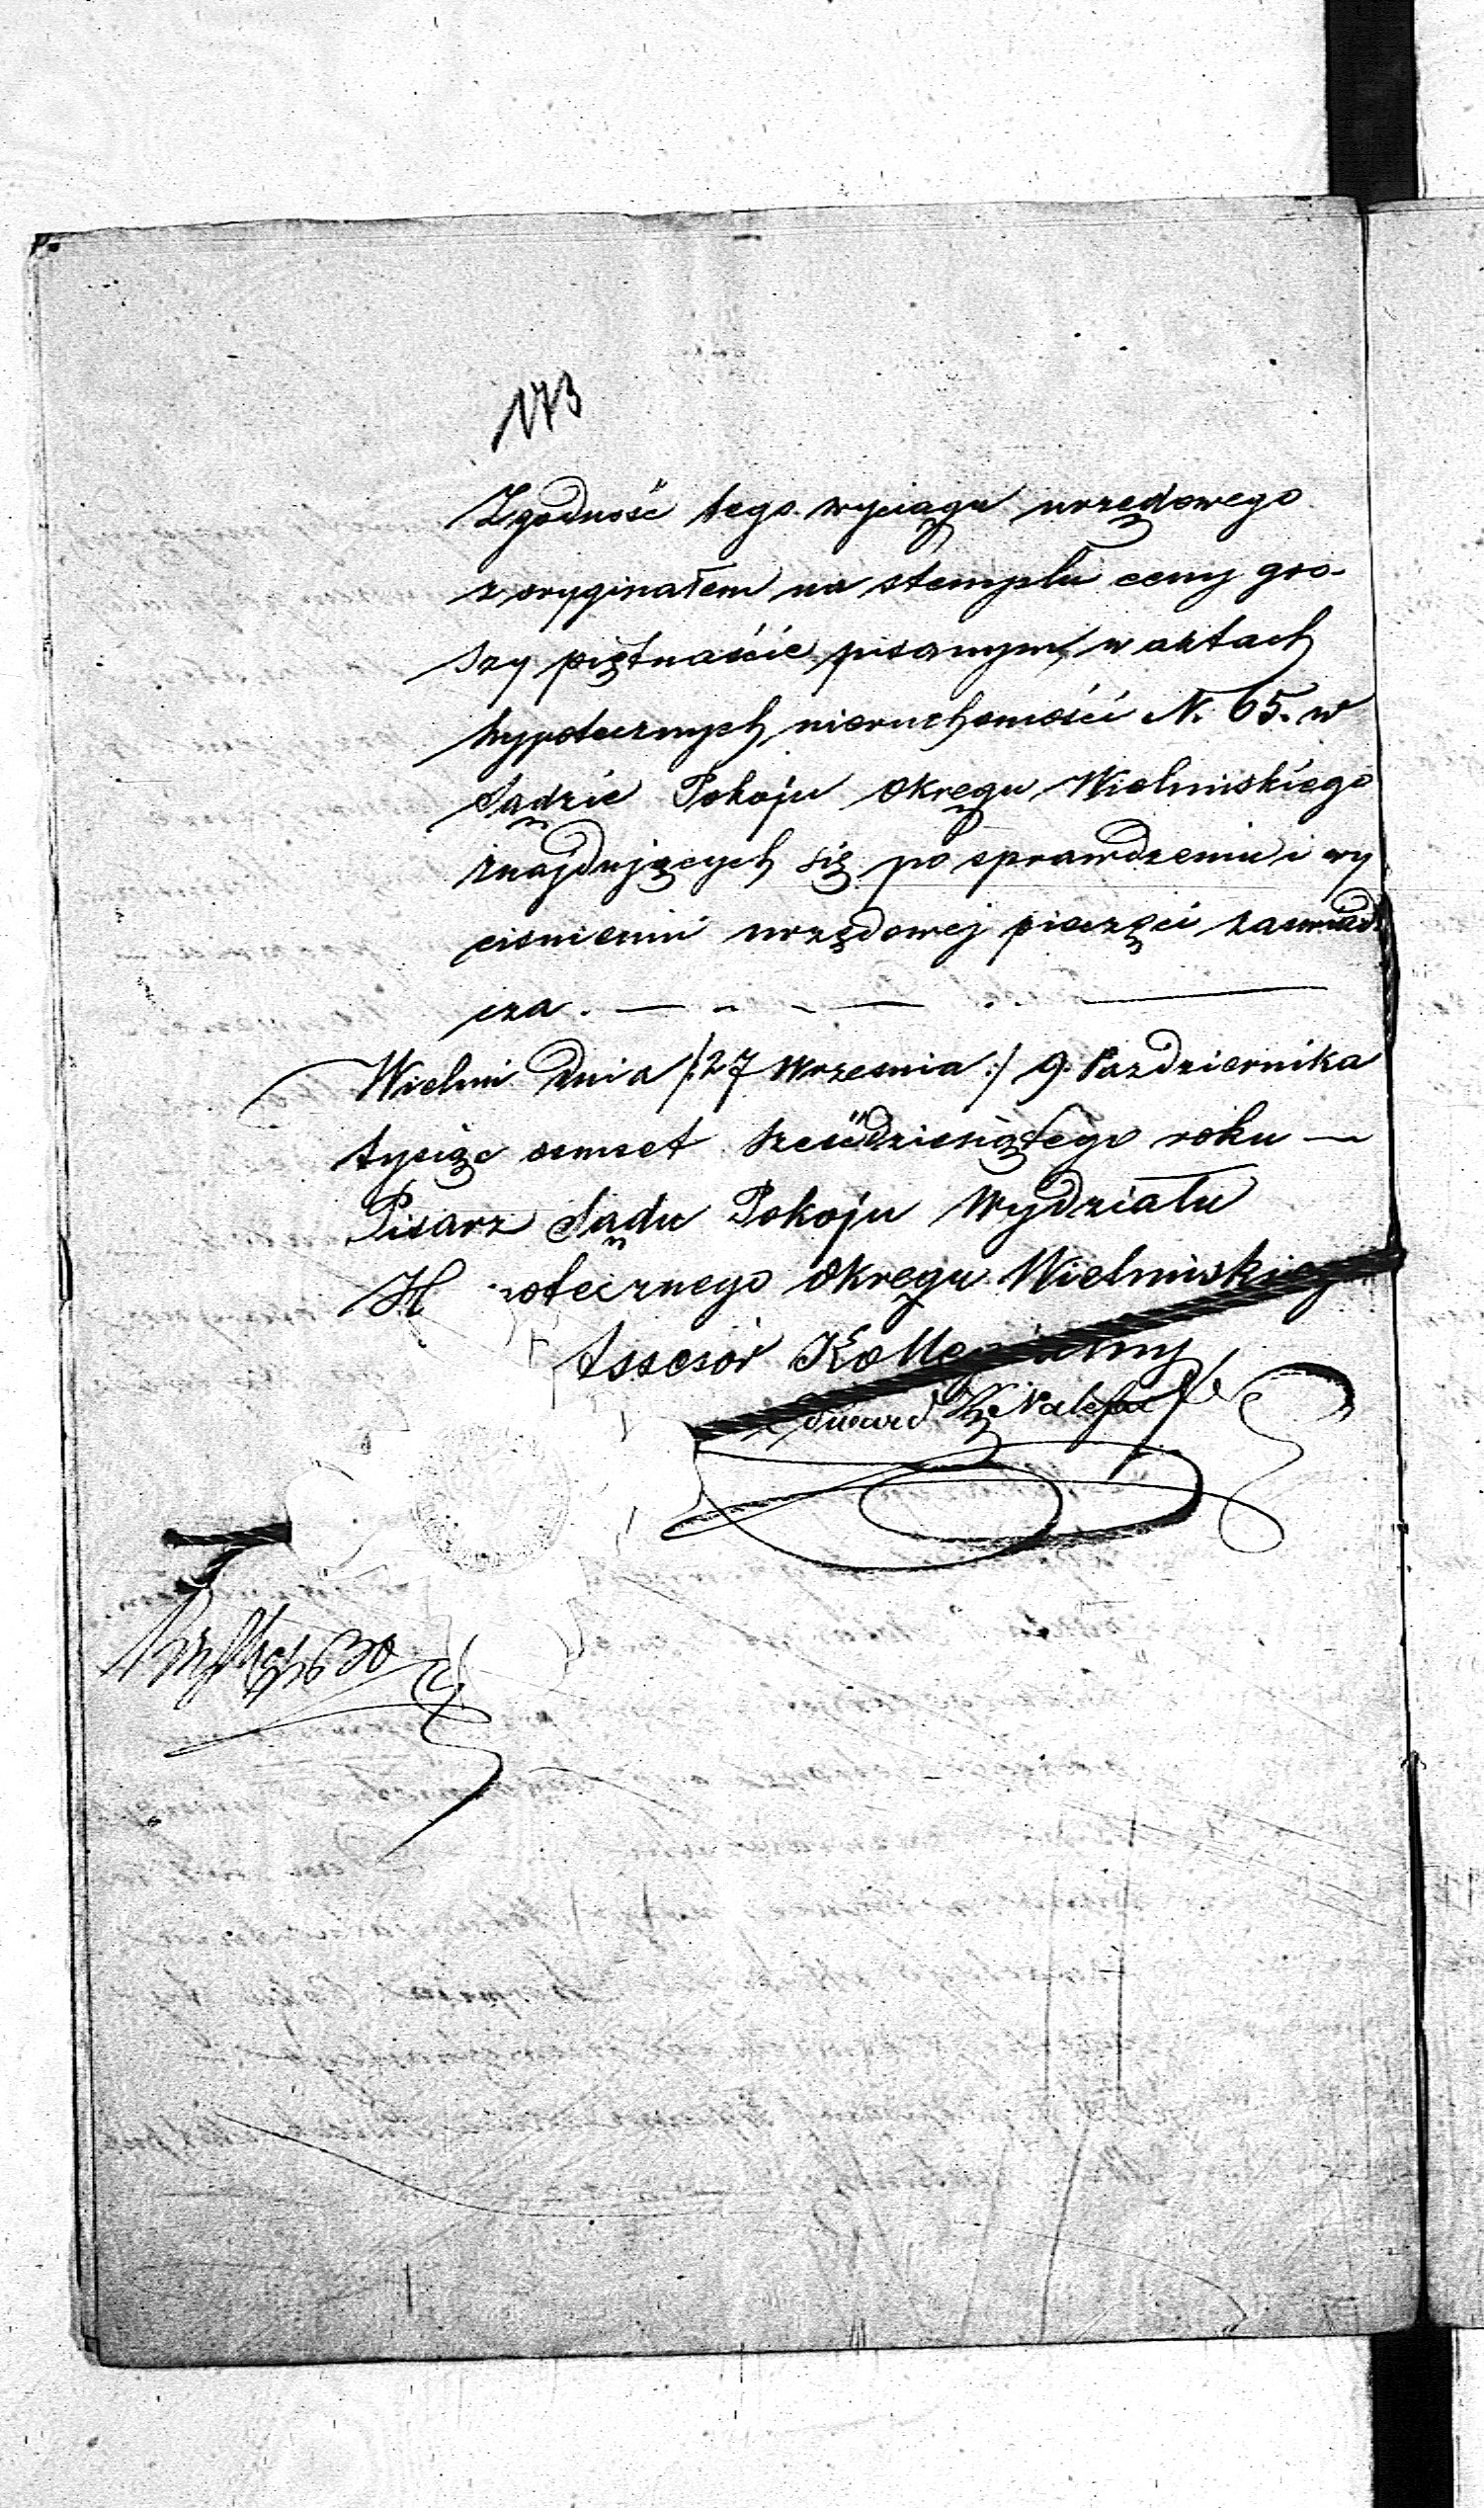 173
Zgodność tego wyciągu urzędowego
z oryginałem na stemplu ceny gro-
szy piętnaście pisanym, w aktach
hypotecznych nieruchomości N. 65. w
Sądzie Pokoju Okręgu Wieluńskiego
znajdujących się po sprawdzeniu i wy
ciśnieniu urzędowej pieczęci zaświad
cza. —
Wieluń dnia /:27 Wrzesnia:/ 9. Pazdziernika
tysiąc osmset sześćdziesiątego roku —
Pisarz Sądu Pokoju Wydziału
H potecznego Okręgu Wieluńskiego
Assesor Kollegialny
Edward